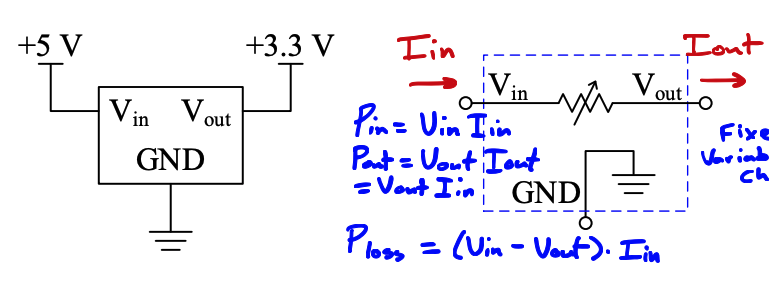 +5 V
+3.3 V
Vin Vout
GND
Iin
Iout
Vin Vout
Pin = Vin Iin
Pout = Vout Iout
= Vout Iin
GND
Ploss = (Vin - Vout) · Iin
Fixe
Variab
Ch